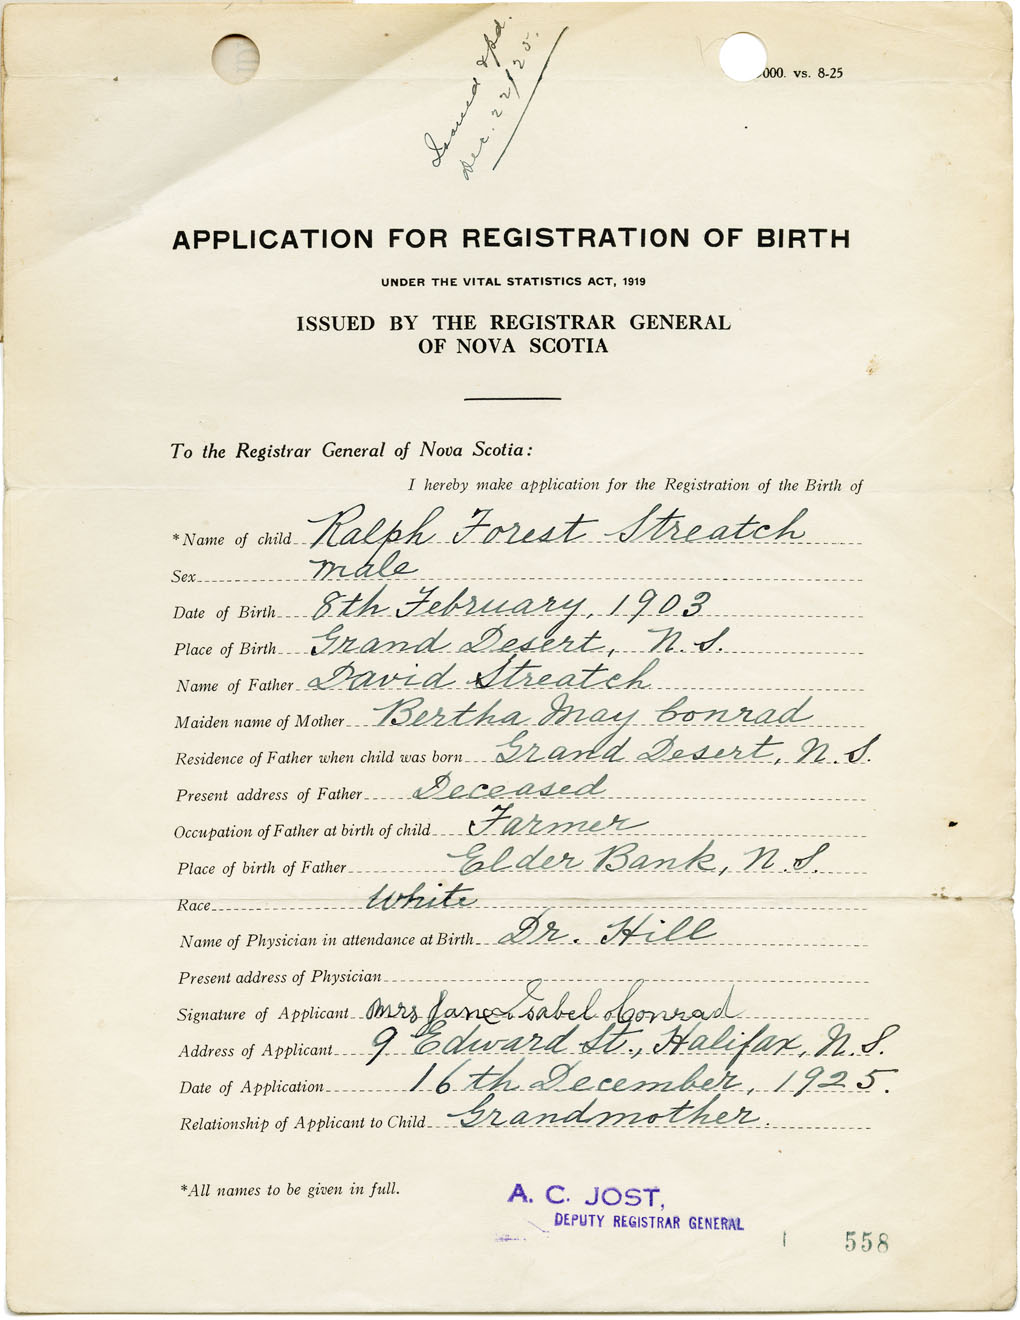 Issued & pd.
Dec. 22/25.
000. vs. 8-25
APPLICATION FOR REGISTRATION OF BIRTH
UNDER THE VITAL STATISTICS ACT, 1919
ISSUED BY THE REGISTRAR GENERAL
OF NOVA SCOTIA
To the Registrar General of Nova Scotia:
I hereby make application for the Registration of the Birth of
*Name of child Ralph Forest Streatch
Sex male
Date of Birth 8th February, 1903
Place of Birth Grand Desert, N.S.
Name of Father David Streatch
Maiden name of Mother Bertha May Conrad
Residence of Father when child was born Grand Desert, N.S.
Present address of Father Deceased
Occupation of Father at birth of child Farmer
Place of birth of Father Elder Bank, N.S.
Race White
Name of Physician in attendance at Birth Dr. Hill
Present address of Physician
Signature of Applicant Mrs Jane Isabel Conrad
Address of Applicant 9 Edward St., Halifax, N.S.
Date of Application 16th December, 1925.
Relationship of Applicant to Child Grandmother.
*All names to be given in full.
A. C. JOST,
DEPUTY REGISTRAR GENERAL
558